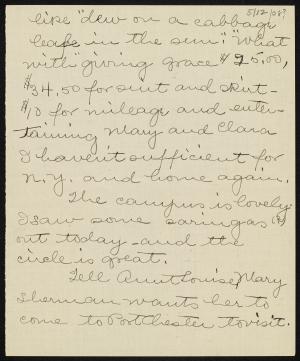 5/12/08?
like "dew on a cabbage
leafe in the sun"! What
with giving Grace $25.00,
$34.50 for suit and skirt -
$10 for mileage and enter-
taining Mary and Clara
I haven't sufficient for
N.Y. and home again.
The campus is lovely.
I saw some saringas (?)
out today - and the
circle is great.
Tell Aunt Louise, Mary
Sherman wants her to
come to Portchester to visit.